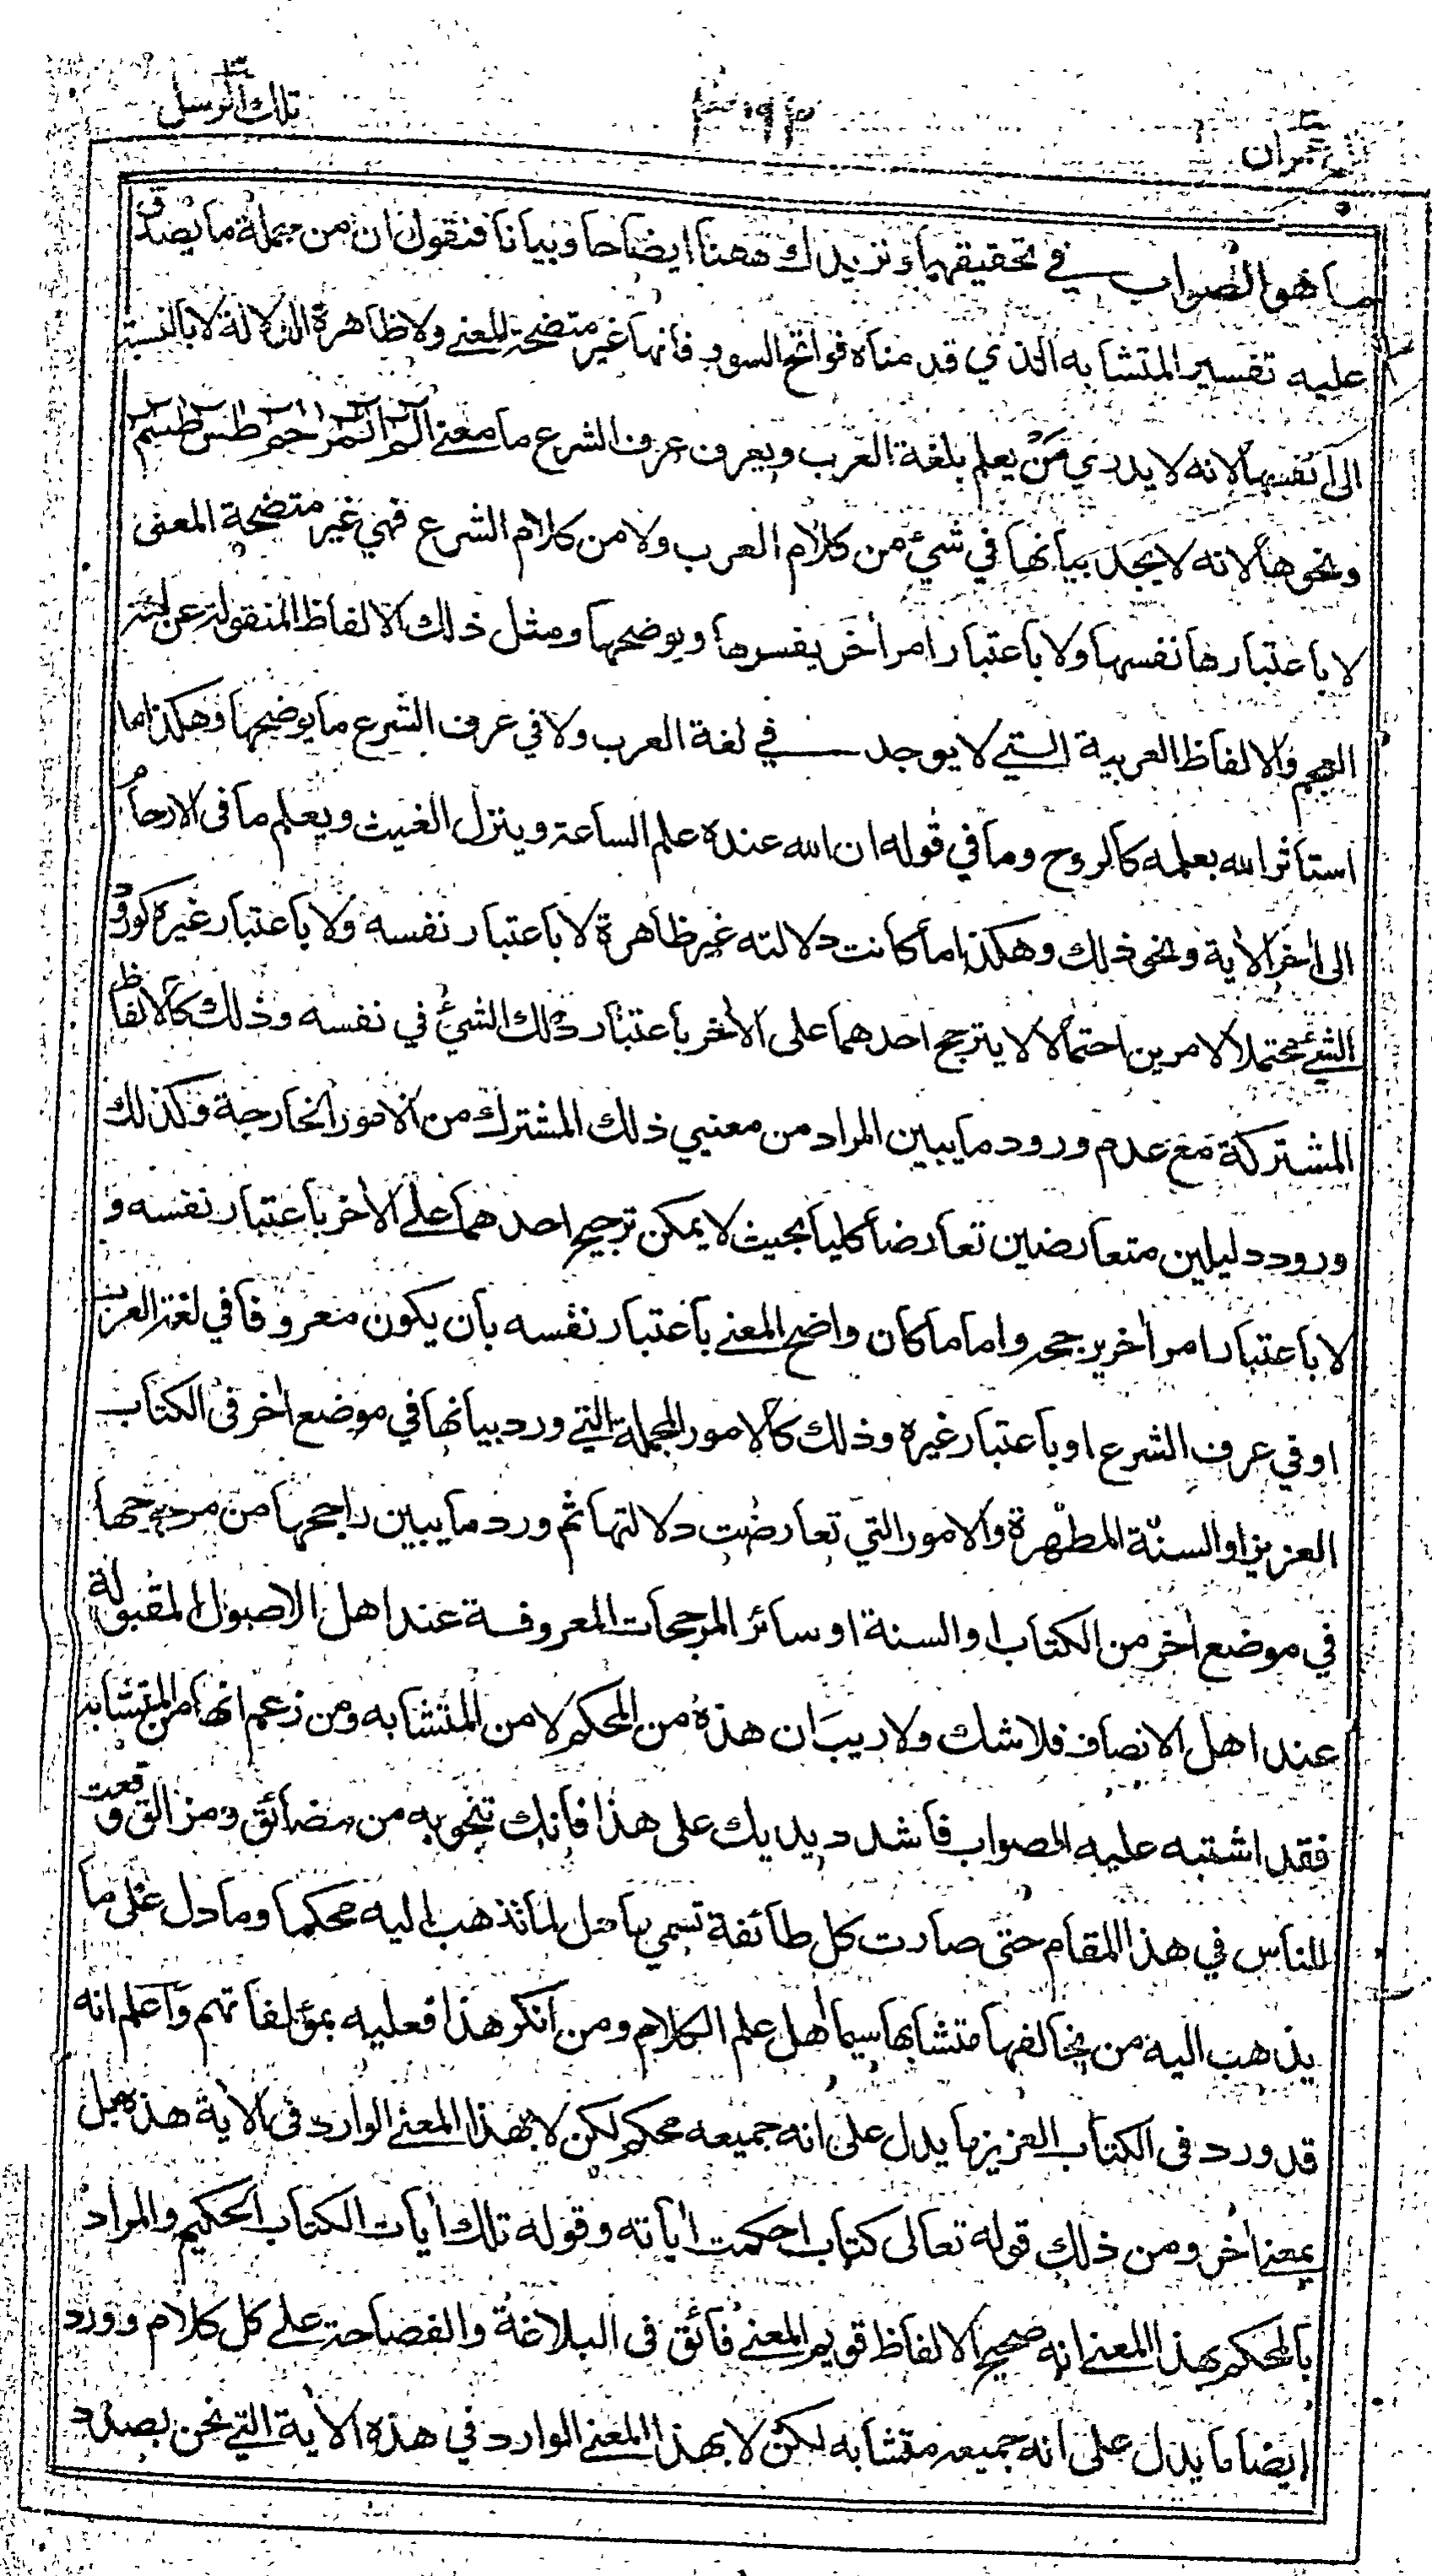 تلك الرسل
عمران
ما هو الصواب في تحقيقهما ونزيدك ههنا ايضاحا وبيانا فنقول ان من جملة ما يصدق
عليه تفسير المتشابه الذي قدمناه فواتح السور فانها غير متضحة المعنى ولا ظاهرة الدلالة لا بالنسبة
الى انفسها لانه لا يدري من يعلم بلغة العرب ويعرف عرف الشرع ما معنى الم المر حم طس طسم
ونحوها لانه لا يجد بيانها في شيء من كلام العرب ولا من كلام الشرع فهي غير متضحة المعنى
لا باعتبارها نفسها ولا باعتبار امر اخر يفسرها ويوضحها ومثل ذلك الالفاظ المنقولة عن لغة
العجم والالفاظ العربية التي لا يوجد في لغة العرب ولا في عرف الشرع ما يوضحها وهكذا ما
استاثر الله بعلمه كالروح وما في قوله ان الله عنده علم الساعة وينزل الغيث ويعلم ما فى الارحام
الى اخر الاية ونحو ذلك وهكذا ما كانت دلالته غير ظاهرة لا باعتبار نفسه ولا باعتبار غيره كورود
الشئ محتملا لامرين احتمالا لا يترجح احدهما على الاخر باعتبار ذلك الشئ في نفسه وذلك كالالفاظ
المشتركة مع عدم ورود ما يبين المراد من معنيي ذلك المشترك من الامور الخارجة وكذلك
ورود دليلين متعارضين تعارضا كليا بحيث لا يمكن ترجيح احدهما على الاخر باعتبار نفسه و
لا باعتبار امر اخر يرجحه واما ما كان واضح المعنى باعتبار نفسه بان يكون معروفا في لغة العرب
او في عرف الشرع او باعتبار غيره وذلك كالامور المجملة التي ورد بيانها في موضع اخر فى الكتاب
العزيز او السنة المطهرة والامور التي تعارضت دلالتها ثم ورد ما يبين راجحها من مرجوحها
في موضع اخر من الكتاب او السنة او سائر المرجحات المعروفة عند اهل الاصول المقبولة
عند اهل الانصاف فلا شك ولا ريب ان هذه من المحكم لا من المتشابه ومن زعم انها من المتشابه
فقد اشتبه عليه الصواب فاشدد يديك على هذا فانك تنجو به من مضائق ومزالق وقعت
للناس في هذا المقام حتى صارت كل طائفة تسمي ما دل لما تذهب اليه محكما وما دل على ما
يذهب اليه من يخالفها متشابها سيما اهل علم الكلام ومن انكر هذا فعليه بمؤلفاتهم واعلم انه
قد ورد فى الكتاب العزيز ما يدل على انه جميعه محكم لكن لا بهذا المعنى الوارد فى الاية هذه بل
بمعنى اخر ومن ذلك قوله تعالى كتاب احكمت اياته وقوله تلك ايات الكتاب الحكيم والمراد
بالمحكم بهذا المعنى انه صحيح الالفاظ قويم المعنى فائق فى البلاغة والفصاحة على كل كلام وورد
ايضا ما يدل على انه جميعه متشابه لكن لا بهذا المعنى الوارد في هذه الاية التي نحن بصدد